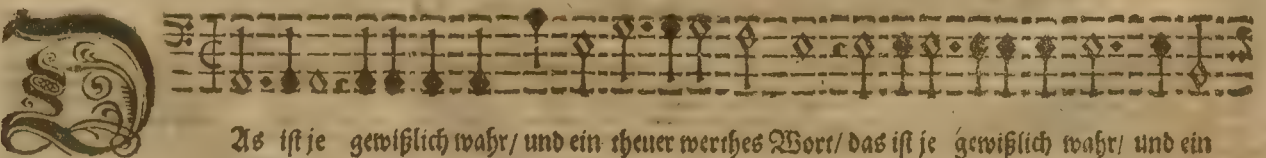 DAs ist je gewißlich wahr/ und ein theuer werthes Wort/ das ist je gewißlich wahr/ und ein